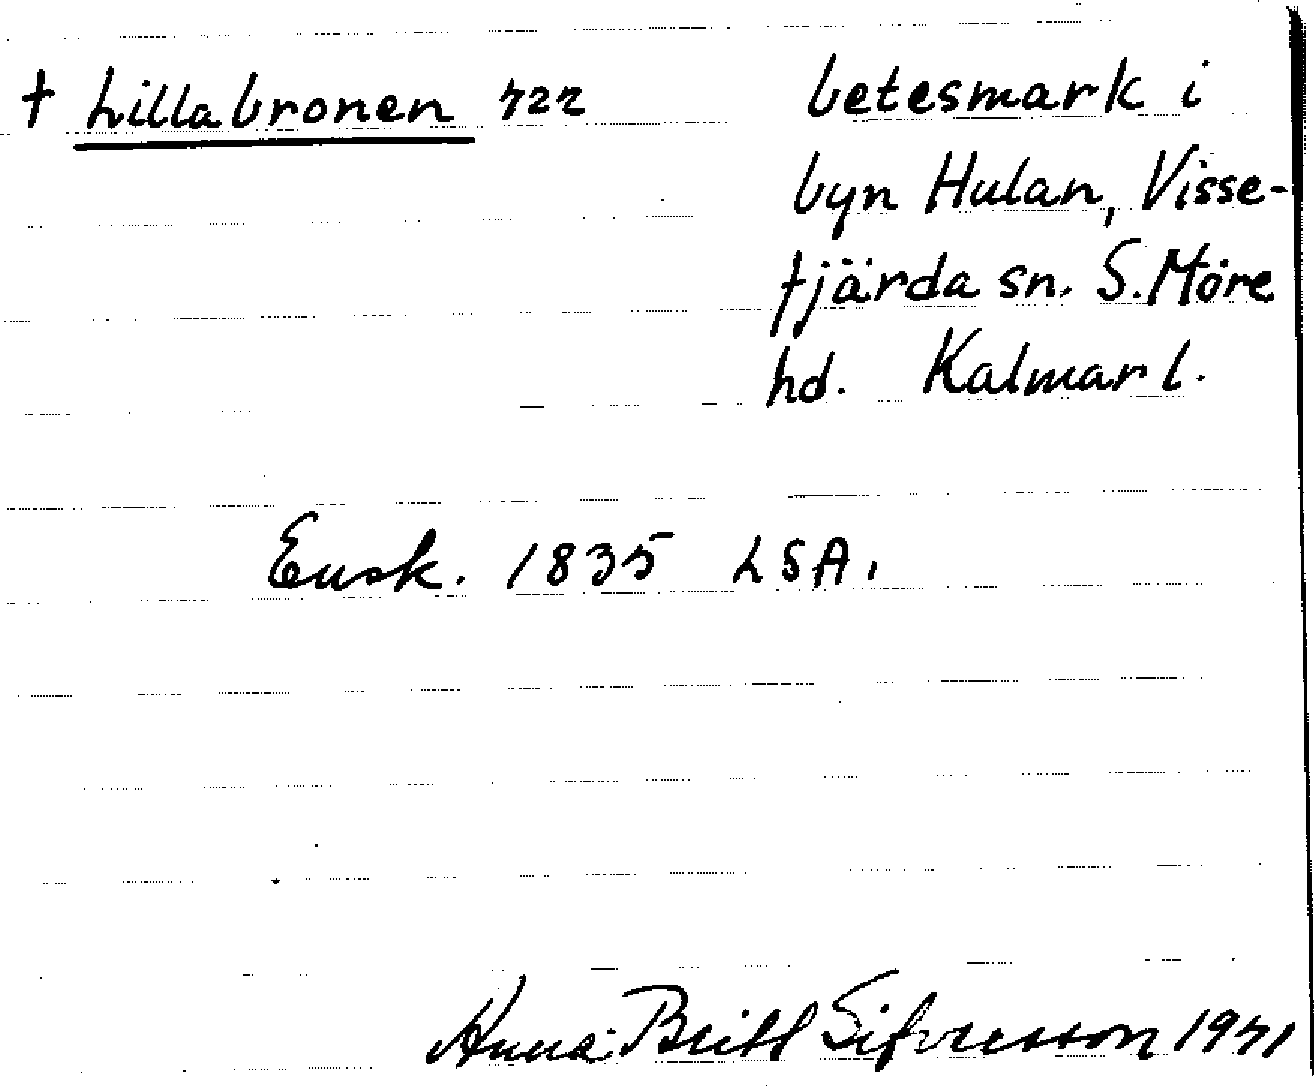 † Lillabronen 722 betesmark i
byn Hulan, Visse-
fjärda sn. S. Möre
hd. Kalmar l.
Ensk. 1835 LSA.
Anna-Britt Sifvresson 1971